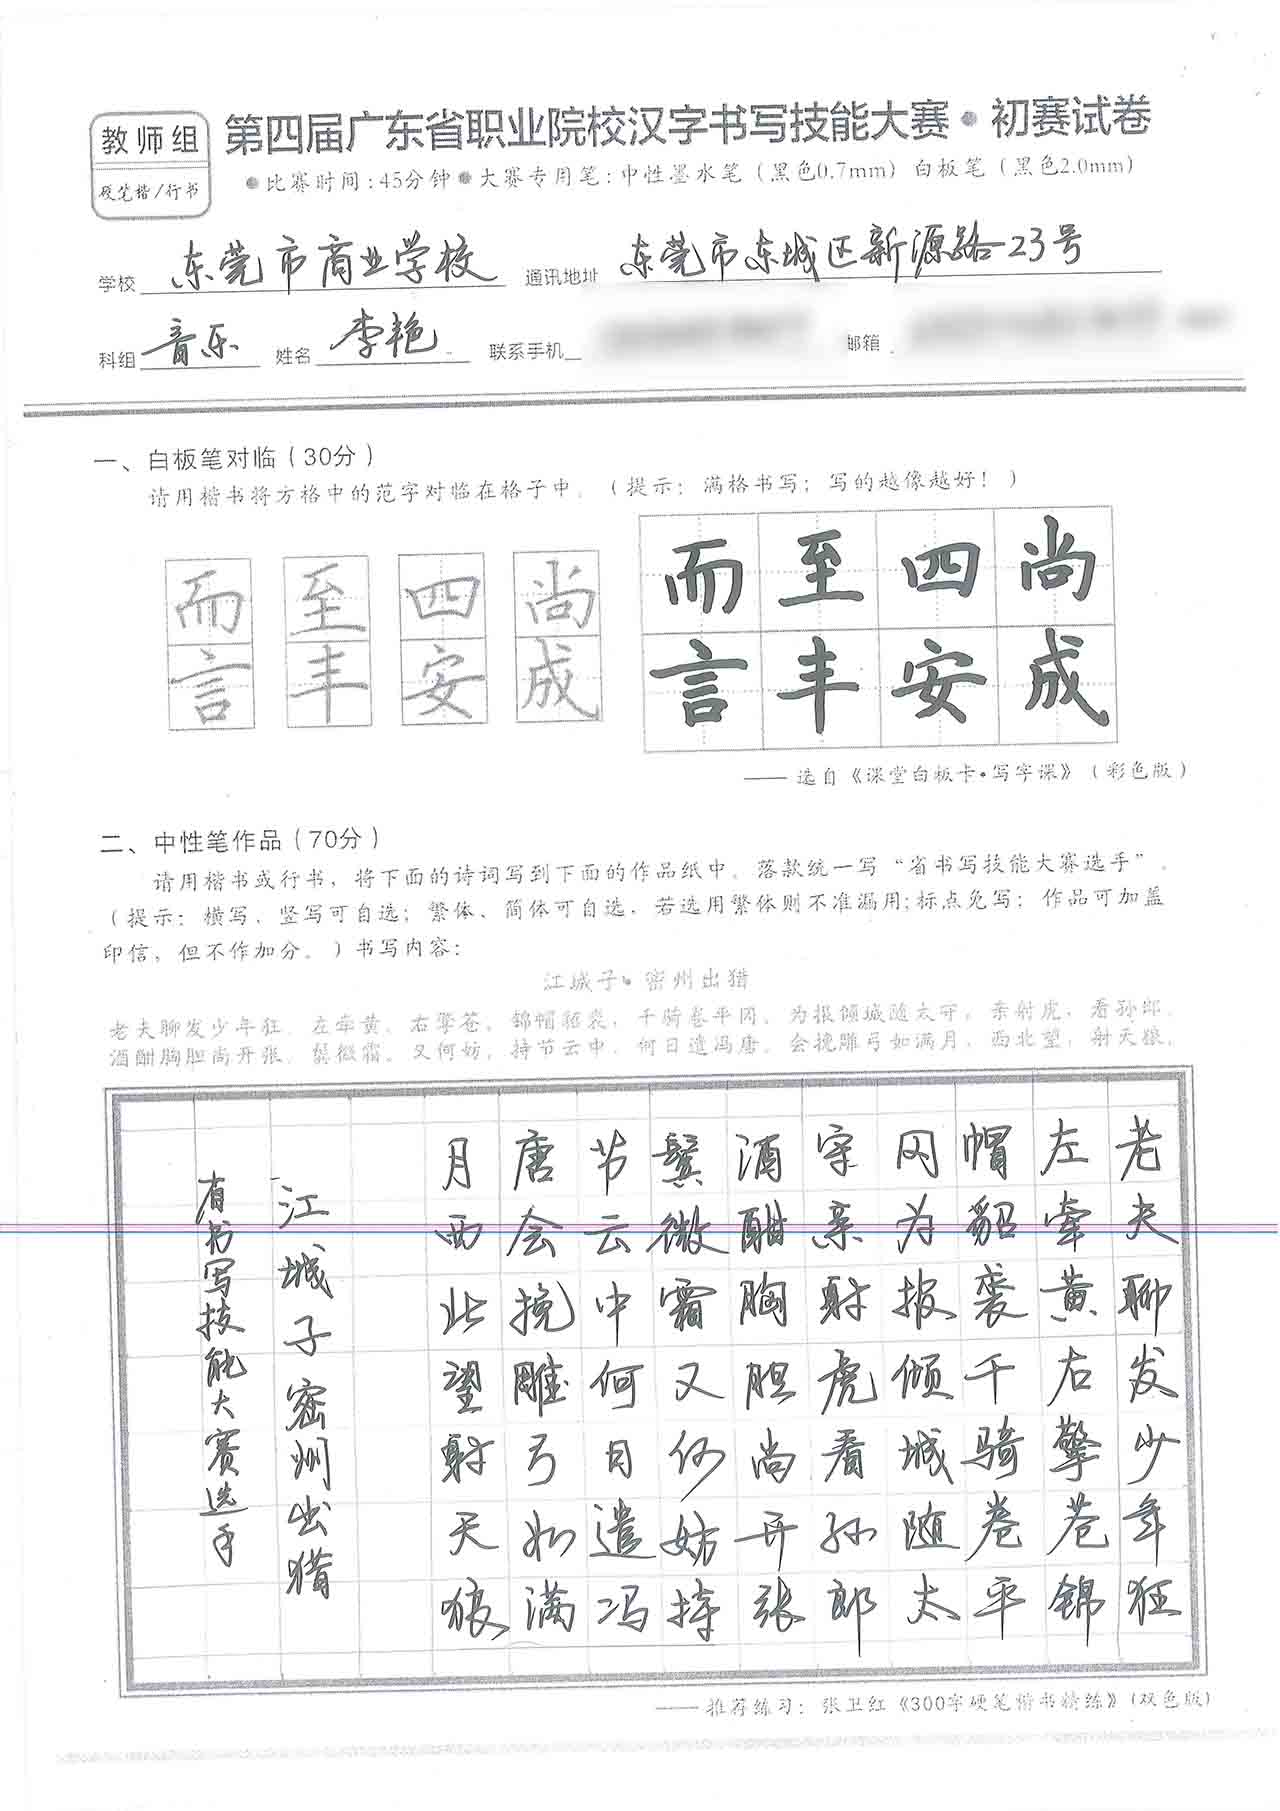 教师组
硬笔楷/行书
第四届广东省职业院校汉字书写技能大赛·初赛试卷
●比赛时间:45分钟●大赛专用笔:中性墨水笔（黑色0.7mm）白板笔（黑色2.0mm）
学校 东莞市商业学校 通讯地址 东莞市东城区新源路23号
科组 音乐 姓名 李艳 联系手机 邮箱
一、白板笔对临（30分）
请用楷书将方格中的范字对临在格子中。（提示：满格书写；写的越像越好！）
而 至 四 尚 而 至 四 尚
言 丰 安 成 言 丰 安 成
——选自《课堂白板卡·写字课》（彩色版）
二、中性笔作品（70分）
请用楷书或行书，将下面的诗词写到下面的作品纸中。落款统一写“省书写技能大赛选手”。
（提示：横写、竖写可自选；繁体、简体可自选，若选用繁体则不准漏用;标点免写；作品可加盖
印信，但不作加分。）书写内容：
江城子·密州出猎
老夫聊发少年狂，左牵黄，右擎苍，锦帽貂裘，千骑卷平冈。为报倾城随太守，亲射虎，看孙郎。
酒酣胸胆尚开张，鬓微霜，又何妨，持节云中，何日遣冯唐。会挽雕弓如满月，西北望，射天狼。
老夫聊发少年狂
左牵黄右擎苍锦
帽貂裘千骑卷平
冈为报倾城随太
守亲射虎看孙郎
酒酣胸胆尚开张
鬓微霜又何妨持
节云中何日遣冯
唐会挽雕弓如满
月西北望射天狼
江城子密州出猎
省书写技能大赛选手
——推荐练习：张卫红《300字硬笔楷书精练》(双色版)